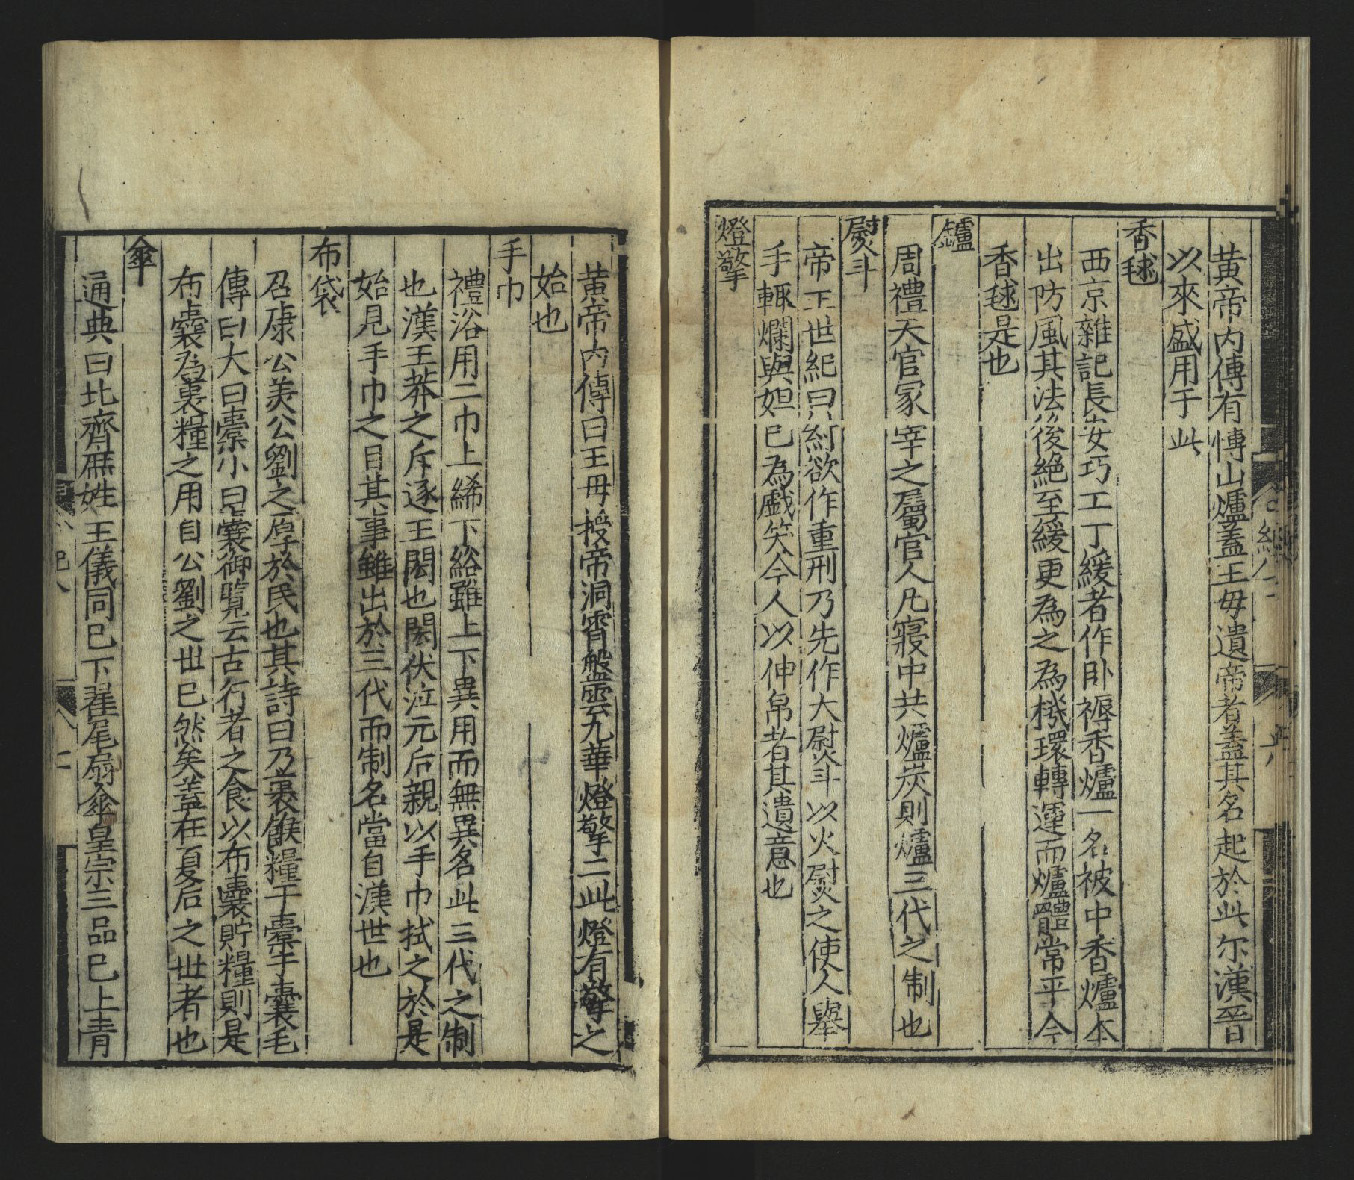 黃帝內傳有博山爐蓋王毋遺帝者蓋其名起於此尔漢晉
以來盛用于此
香毬
西京雜記長安巧工丁緩者作卧褥香爐一名被中香爐本
出防風其法後絶至緩更為之為機環轉運而爐體常平今
香毬是也
鑪
周禮天官冡宰之屬官人凡寢中共爐炭則爐三代之制也
熨斗
帝王世紀曰紂欲作重刑乃先作大熨斗以火熨之使人舉
手輙爛與妲巳為戲笑今人以伸帛者其遺意也
燈擎
黃帝內傳曰王毋授帝洞霄盤雲九華燈擎二此燈有擎之
始也
手巾
禮浴用二巾上絺下綌雖上下異用而無異名此三代之制
也漢王莽之斥逐王閎也閎伏泣元后親以手巾拭之於是
始見手巾之目其事雖出於三代而制名當自漢世也
布袋
召康公美公劉之厚於民也其詩曰乃裹餱糧于橐于囊毛
傳曰大曰橐小曰囊御覽云古行者之食以布囊貯糧則是
布囊為裹糧之用自公劉之世巳然矣蓋在夏后之世者也
傘
通典曰北齊庶姓王儀同巳下翟尾扇傘皇宗三品巳上青